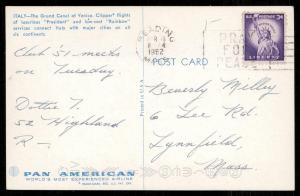 ITALY—The Grand Canal of Venice. Clipper® flights
of luxurious "President" and low-cost "Rainbow"
services connect Italy with major cities on all
six continents.
READING
1962
MASS
PRAY
FOR
PEACE
U.S. POSTAGE
3¢
LIBERTY
POST CARD
Club '51 meets
on Tuesday.
Dottie T.
52 Highland
R—
Beverly Milley
6 Lee Rd.
Lynnfield,
Mass
Printed in U.S.A.
PAN AMERICAN
WORLD'S MOST EXPERIENCED AIRLINE